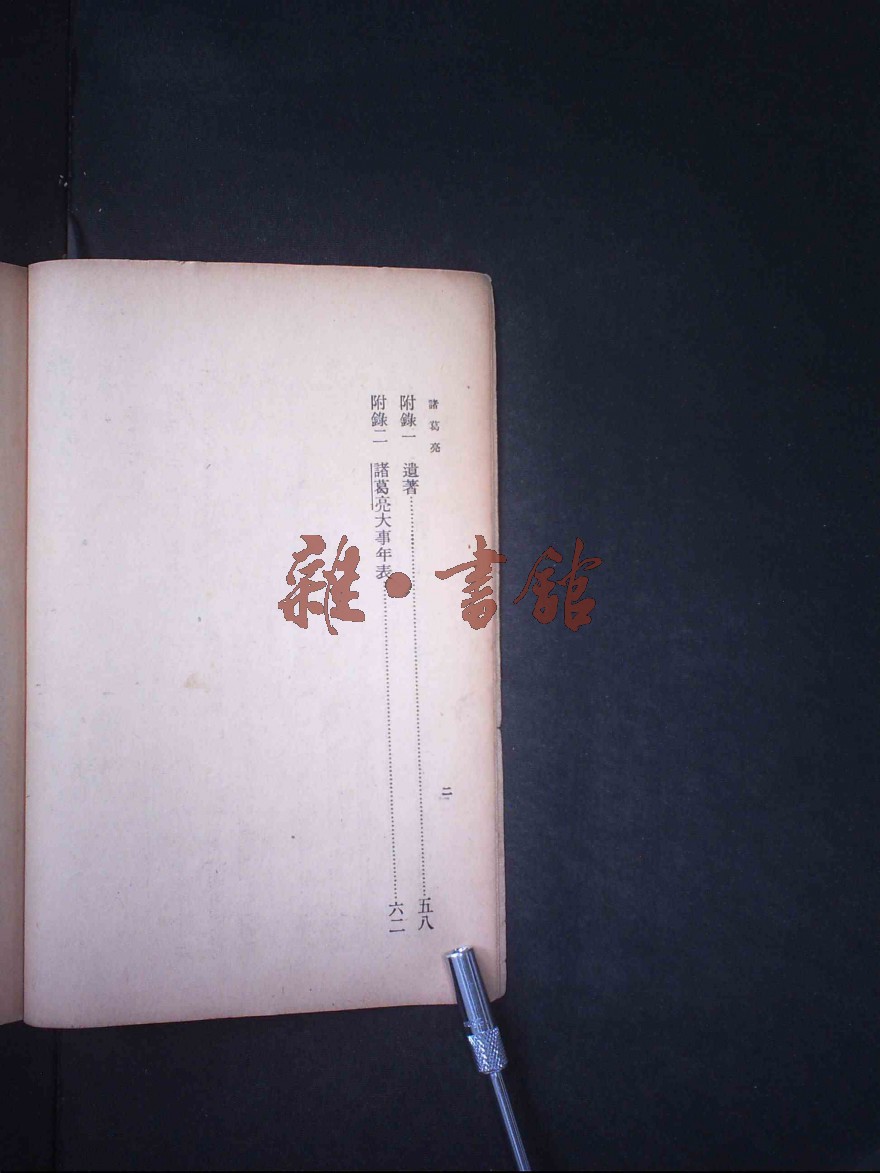 諸葛亮
二
附錄一　遺著……五八
附錄二　諸葛亮大事年表……六二
雜·書館